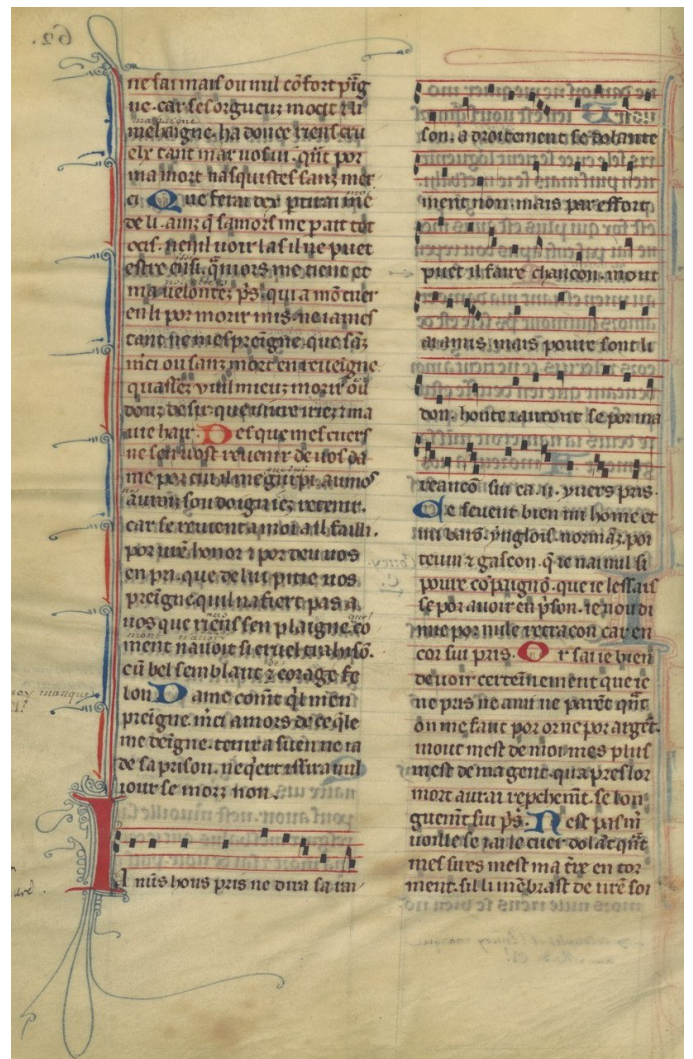 62.
ne sai mais ou nul cōfort p̄ig
ne. car ses orgueuz mocit τ li
mehaigne. ha douce riens cru
elx tant mar vos vi. q̄nt por
ma mort nasquistes sanz mer
ci. Que ferai dex ꝑtirai me
de li. ainz q̄ samors me ꝑait tot
ocis. nenil voir las il ne puet
estre ensi. q̄ mors me tient et
ma volentez p̄s. qui a mō cuer
en li por morir mis. ne iames
tant ne mespreigne. que sāz
m̄ci ou sanz mort en reveigne
mieuz morir
ma
vie hair. Des que mes cuers
ne sen vost revenir de vos da
me por cui il me guerpi. aumos
avrai son doignez retenir.
car se revient a moi a il failli.
por vr̄e honor τ por deu vos
en pri. que de lui pitie vos
preigne quil nafiert pas a
vos que riens sen plaigne. co
ment navoit si cruel
cū bel semblant τ corage fe
lon. Dame comēt q̄l men
preigne. m̄ci amors de ce q̄le
me deigne. tenir a suen ne ia
de sa prison. ne q̄ert issir a nul
iour se morz non.
Ia nūs hons pris ne dira sa rai
son. a droitement se dolante
ment non. mais par effort
puet il faire chancon. mout
ai amis. mais poure sont li
don. honte i auront se por ma
reancō sui ca .ii. yvers pris.
Ce sevent bien mi home et
mi barō. ynglois. normāz. poi
tevin τ gascon. q̄ ie nai nul si
povre cōpaignō. que ie lessais
se por avoir en p̄son. ie nou di
mie por nule retracon car en
cor sui pris. Or sai ie bien
de voir certeinnement que ie
ne pris ne ami ne parēt q̄nt
on me faut por or ne por argēt.
mout mest de moi. mes plus
mest de ma gent. quapres lor
mort aurai repchem̄t. se lon
guem̄t sui p̄s. Nest pas m̄
voille se iai le cuer dolāt q̄nt
mes sires mest ma t̄re en tor
ment. sil li mēbrast de vr̄e soi